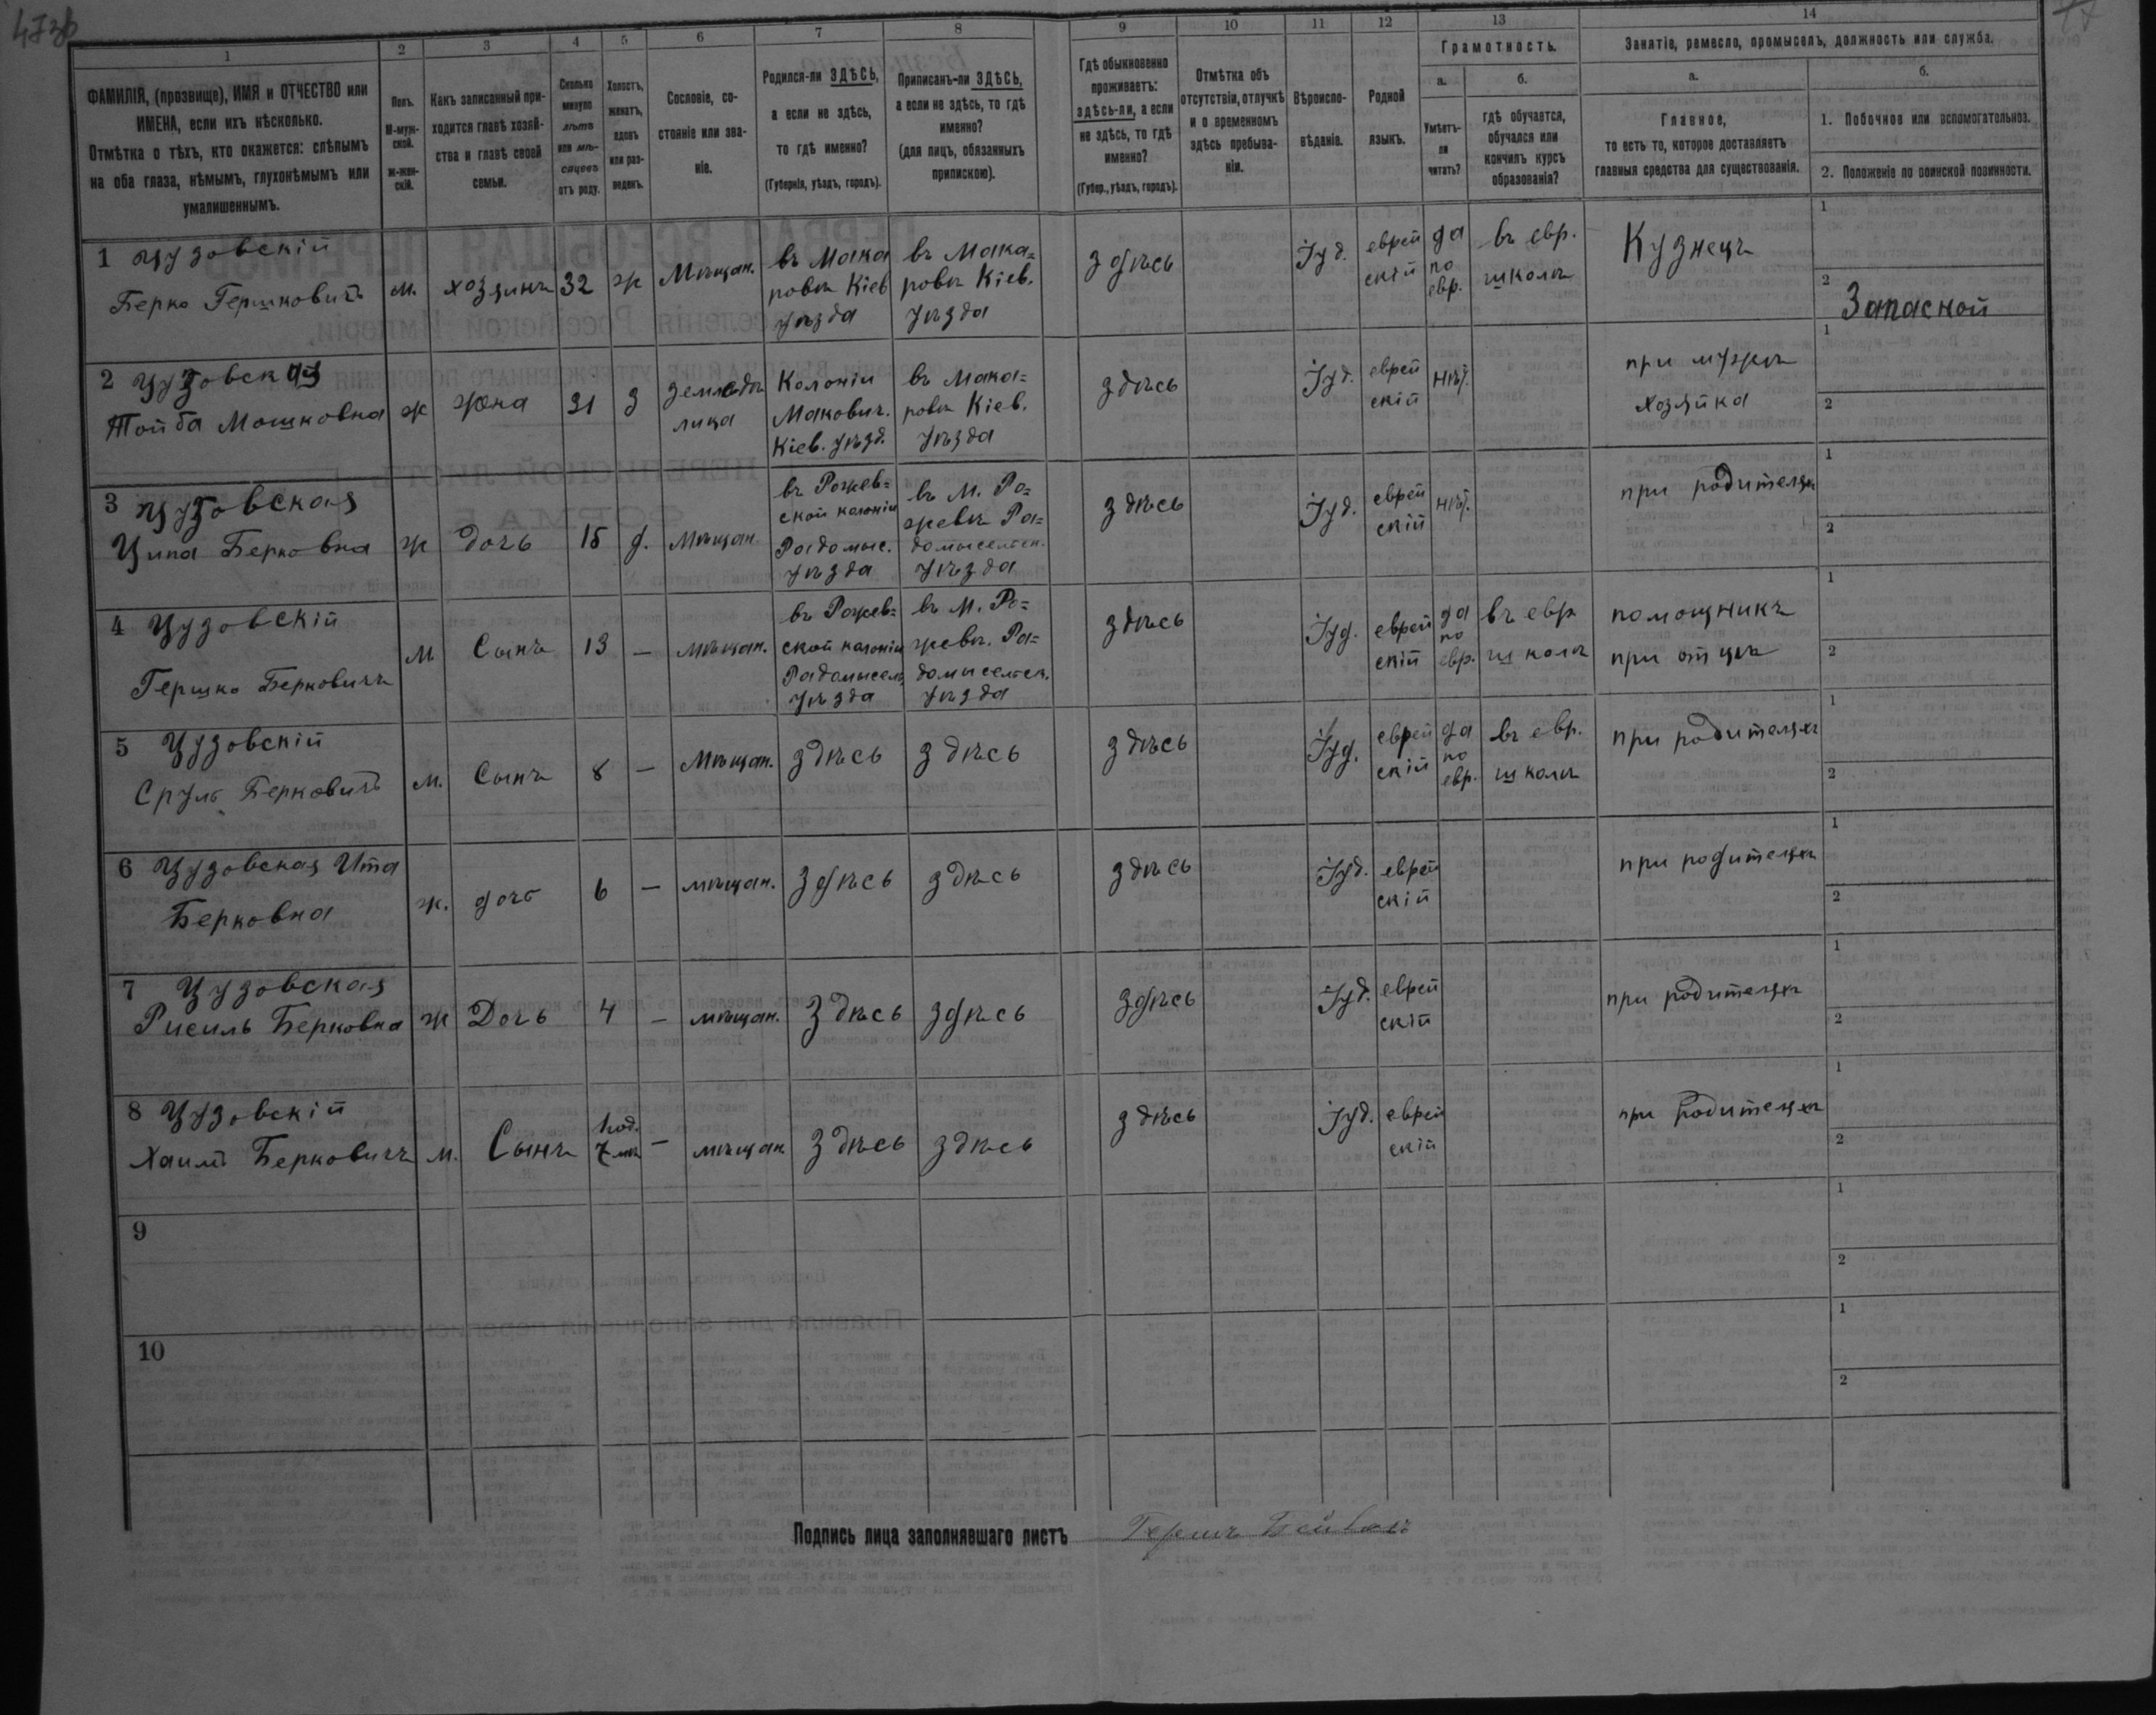 473б
1
2
3
4
5
6
7
8
9
10
11
12
13
14
ФАМИЛІЯ, (прозвище), ИМЯ и ОТЧЕСТВО или
ИМЕНА, если ихъ нѣсколько.
Отмѣтка о тѣхъ, кто окажется: слѣпымъ
на оба глаза, нѣмымъ, глухонѣмымъ или
умалишеннымъ.
Полъ.
М-муж-
ской.
ж-жен-
скій.
Какъ записанный при-
ходится главѣ хозяй-
ства и главѣ своей
семьи.
Сколько
минуло
лѣтъ
или мѣ-
сяцевъ
отъ роду.
Холостъ,
женатъ,
вдовъ
или раз-
веденъ.
Сословіе, со-
стояніе или зва-
ніе.
Родился-ли ЗДѢСЬ,
а если не здѣсь,
то гдѣ именно?
(Губернія, уѣздъ, городъ).
Приписанъ-ли ЗДѢСЬ,
а если не здѣсь, то гдѣ
именно?
(для лицъ, обязанныхъ
припискою).
Гдѣ обыкновенно
проживаетъ:
здѣсь-ли, а если
не здѣсь, то гдѣ
именно?
(Губер., уѣздъ, городъ).
Отмѣтка объ
отсутствіи, отлучкѣ
и о временномъ
здѣсь пребыва-
ніи.
Вѣроиспо-
вѣданіе.
Родной
языкъ.
Грамотность.
а.
Умѣетъ-
ли
читать?
б.
гдѣ обучается,
обучался или
кончилъ курсъ
образованія?
Занятіе, ремесло, промыселъ, должность или служба.
а.
Главное,
то есть то, которое доставляетъ
главныя средства для существованія.
б.
1. Побочное или вспомогательное.
2. Положеніе по воинской повинности.
1 Цузовскій
Берко Гершковичъ
м.
хозяинъ
32
ж
Мѣщан.
въ Мака
ровѣ Кіев
уѣзда
въ Мака=
ровѣ Кіев.
уѣзда
здѣсь
Іуд.
еврей
скій
да
по
евр.
въ евр.
школѣ
Кузнецъ
1
2
Запасной
2 Цузовская
Тойба Мошковна
ж
жена
31
з
Колоніи
Макович.
Кіев. уѣзд.
въ Мака=
ровѣ Кіев.
уѣзда
здѣсь
Іуд.
еврей
скій
нѣт.
при мужѣ
хозяйка
1
2
3 Цузовская
Ципа Берковна
ж
дочь
15
д.
мѣщан.
въ Рожев=
ской колоніи
Радомыс.
уѣзда
въ М. Ро=
жевѣ Ра=
домыселтск.
уѣзда
здѣсь
Іуд.
еврей
скій
нѣт.
при родителяхъ
1
2
4 Цузовскій
Гершко Берковичъ
м
Сынъ
13
—
мѣщан.
въ Рожев=
ской колоніи
Радомысель
уѣзда
въ М. Ро=
жевѣ. Ра=
домиселтск.
уѣзда
здѣсь
Іуд.
еврей
скій
да
по
евр.
въ евр
школѣ
помощникъ
при отцѣ
1
2
5 Цузовскій
Сруль Берковичъ
м.
Сынъ
8
—
Мѣщан.
здѣсь
здѣсь
здѣсь
Іуд.
еврей
скій
да
по
евр.
въ евр.
школѣ
при родителяхъ
1
2
6 Цузовская Ита
Берковна
ж.
дочь
6
—
мѣщан.
здѣсь
здѣсь
здѣсь
Іуд.
еврей
скій
при родителяхъ
1
2
7 Цузовская
Рисиль Берковна
ж
Дочь
4
—
мѣщан.
здѣсь
здѣсь
здѣсь
Іуд.
еврей
скій
при родителяхъ
1
2
8 Цузовскій
Хаимъ Берковичъ
м.
Сынъ
1 год.
7 мѣ
—
мѣщан
здѣсь
здѣсь
здѣсь
Іуд.
еврей
скій
при родителяхъ
1
2
9
1
2
10
1
2
Подпись лица заполнявшаго листъ